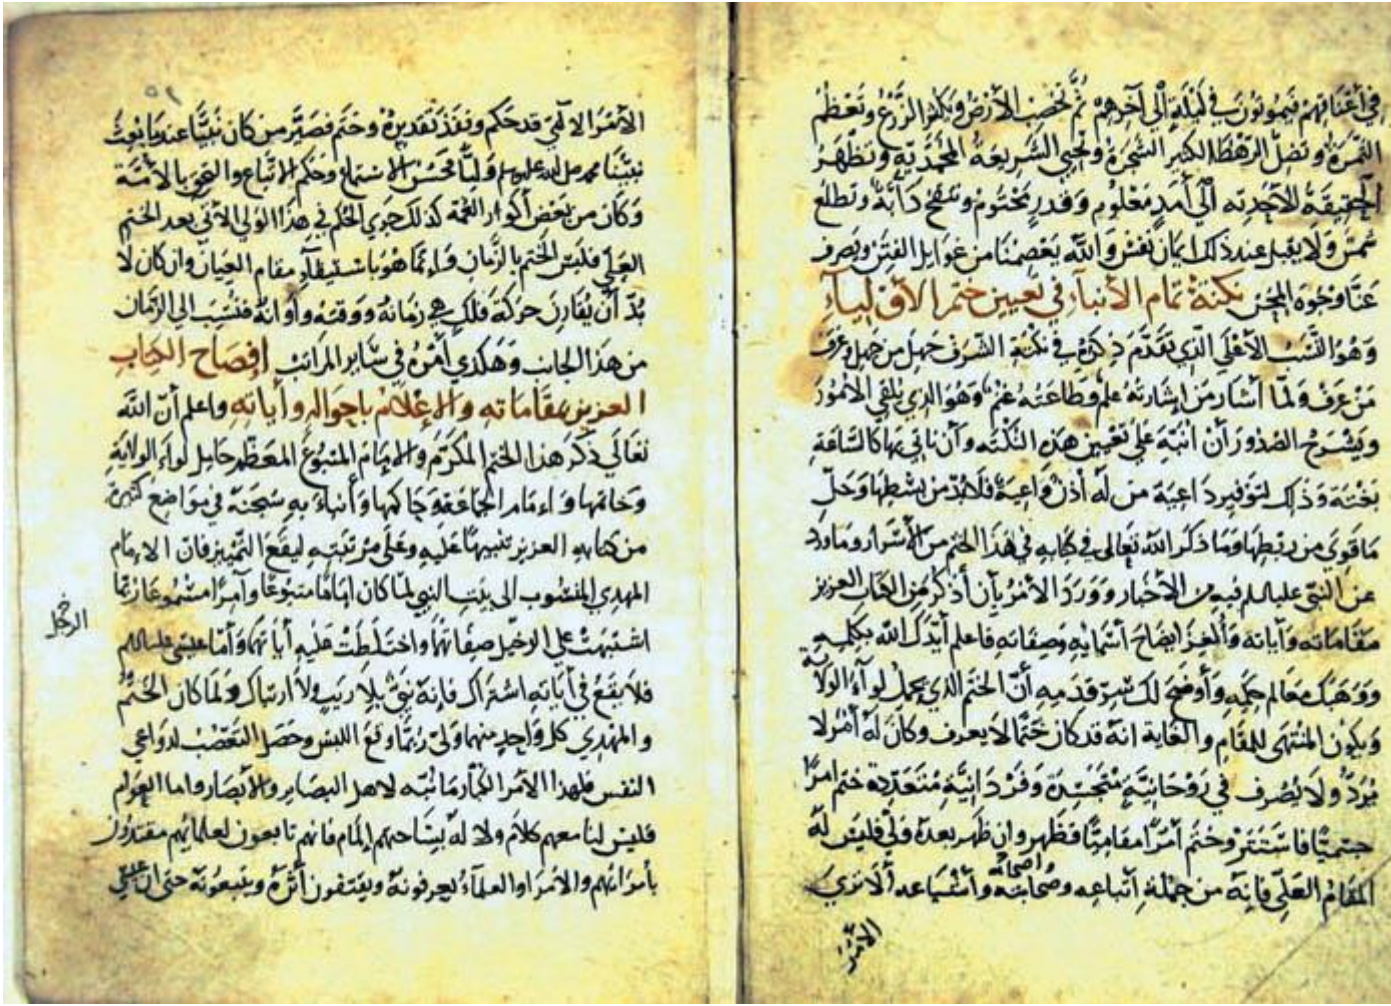 في أعناقهم فيموتون في ليلة إلى آخرهم ثم تخصب الأرض ويكثر الزرع وتعظم
الثمرة ونضل الرهط الكبير الشجرة وتحيى الشريعة المحمدية وتظهر
الحقيقة الأحدية إلى أمد معلوم وقدر محتوم وتنفخ دآبة وتطلع
شمس ولا يقبل عند ذلك إيمان نفس والله يعصمنا من غوايل الفتن ويصرف
عنا وجوه المحن نكتة تمام الأنبآء في تعيين ختم الأوليآء
وهو النسب الأعلى الذي تقدم ذكره في نكتة الشرف جهل من جهل وعرف
من عرف ولما أشار من إشارته علم وطاعته غنم وهو الذي يلقي الأمور
ويشرح الصدور أن أنبه على تعيين هذه النكتة وأن ناتي بها كالساعة
بغتة وذلك لتوفير داعية من له أذن واعية فلا بد من بسطها وحل
ما قوي من ربطها وما ذكر الله تعالى في كتابه في هذا الختم من الأسرار وما ورد
عن النبي عليه السلم فيه من الأخبار وورد الأمر بأن أذكر من الكتاب العزيز
مقاماته وآياته وألغز ايضاح أسمائه وصفاته فاعلم أيدك الله بكلمه
ووهبك معالم حكمه وأوضح لك سر قدمه أن الختم الذي يحمل لوآء الولاية
ويكون المنتهى للمقام والغاية انه قد كان ختما لا يعرف وكان له أمر لا
يرد ولا يصرف في روحانية متجسدة وفردانية متعددة ختم امرا
جسميا فاستتر وختم أمرا مقاميا فظهر وان ظهر بعده ولي فليس له
المقام العلي فإنه من جملة أتباعه وصحابته وأصحابه وأشياعه ألا ترى
الأمر
الأمر الالهي قد حكم ونفذ تقديره وختم فصير من كان نبيا عند ما بعث
نبينا محمد صلى الله عليه وسلم وليا محسن الاستماع وحكم الاتباع والتحق بالأمة
وكان من بعض أكوار الغمة كذلك جرى الحكم في هذا الولي الأتي بعد الختم
العلي فليس الختم بالزمان وإنما هو باستيفآء مقام العيان وان كان لا
بد أن يقارن حركة فلك هي زمانه ووقته وأوانه فنسب الى الزمان
من هذا الجانب وهكذى أمره في ساير المراتب إفصاح الكتاب
العزيز بمقاماته والإعلام باحواله وأياته واعلم أن الله
تعالى ذكر هذا الختم المكرم والإمام المتبوع المعظم حامل لوآء الولاية
وخاتمها وإمام الجماعة وحاكمها وأنباء به سبحنه في مواضع كثيرة
من كتابه العزيز تنبيها عليه وعلى مرتبته ليقع التمييز فان الإمام
المهدي المنسوب الى بيت النبي لما كان إماما متبوعا وآمرا مسموعا ربما
اشتبهت على الدخيل صفاتهما واختلطت عليه أياتهما وأما عيسى عليه السلم
الدخيل
فلا يقع في أياته اشتراك فإنه نبي بلا ريب ولا ارتباك ولما كان الختم
والمهدي كل واحد منهما ولي ربما وقع اللبس وحصل التعصب لدواعي
النفس فلهذا الأمر الكبار ما نبه لاهل البصاير والأبصار واما العوام
فليس لنا معهم كلام ولا له بساحتهم إلمام فانهم تابعون لعلمائهم مقتدون
بأمرائهم والامراء والعلمآء يعرفونه ويقتفون أثره ويتبعونه حتى ان عيسى